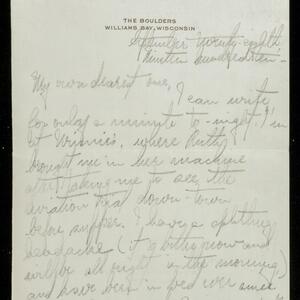 THE BOULDERS
WILLIAMS BAY, WISCONSIN
September twenty-eighth
nineteen hundred ten—
My own dearest one,
I can write
for only a minute to-night. I'm
at Winnie's, where Ruth
brought me in her machine
after taking me to see the
aviation meet down-town
before supper. I have a splitting
headache (it is bilious now and
will be all right in the morning)
and have been in bed ever since